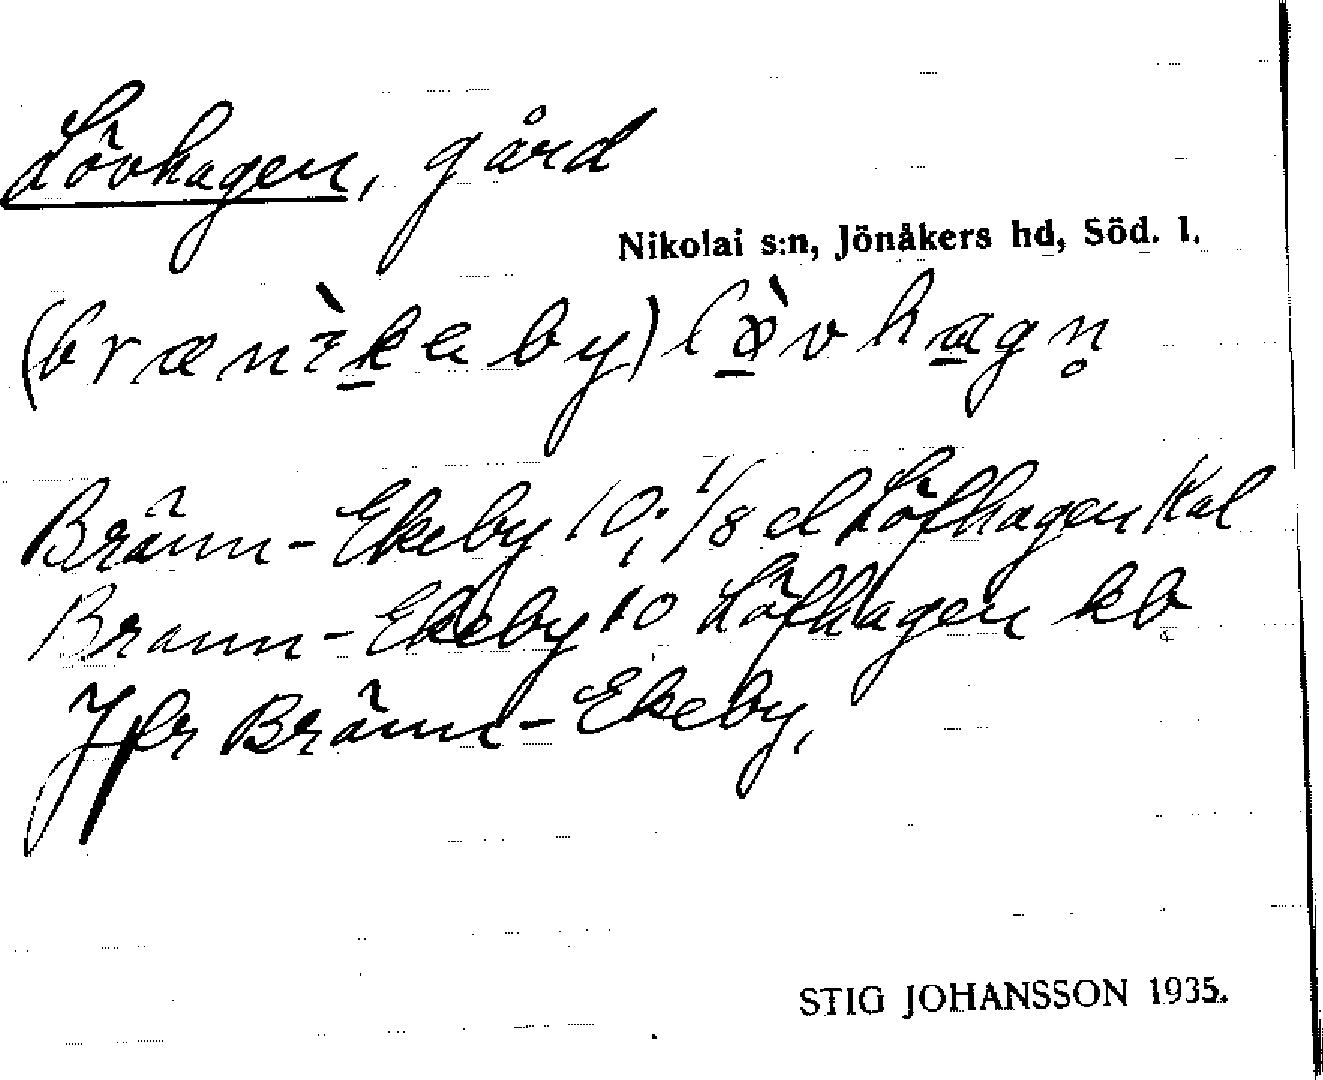 Lövhagen, gård
Nikolai s:n, Jönåkers hd, Söd. l.
(brænèkeby) lø̀vhagn̥
Bränn-Ekeby 10; 1/8 el Löfhagen Kal
Brann-Ekeby 10 Löfhagen kb
Jfr Bränn-Ekeby,
STIG JOHANSSON 1935.